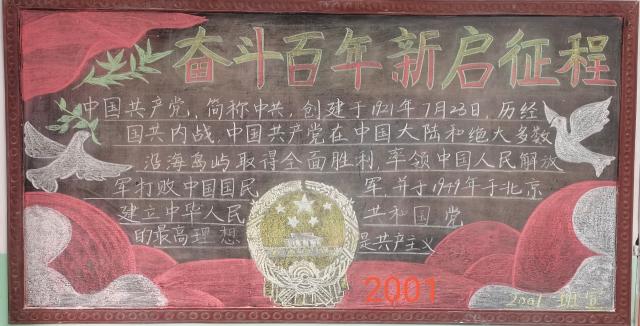 奋斗百年新启征程
中国共产党，简称中共，创建于1921年7月23日，历经
国共内战，中国共产党在中国大陆和绝大多数
沿海岛屿取得全面胜利，率领中国人民解放
军打败中国国民 军，并于1949年于北京
建立中华人民 共和国 党
的最高理想 是共产主义
2001
2001 班宣